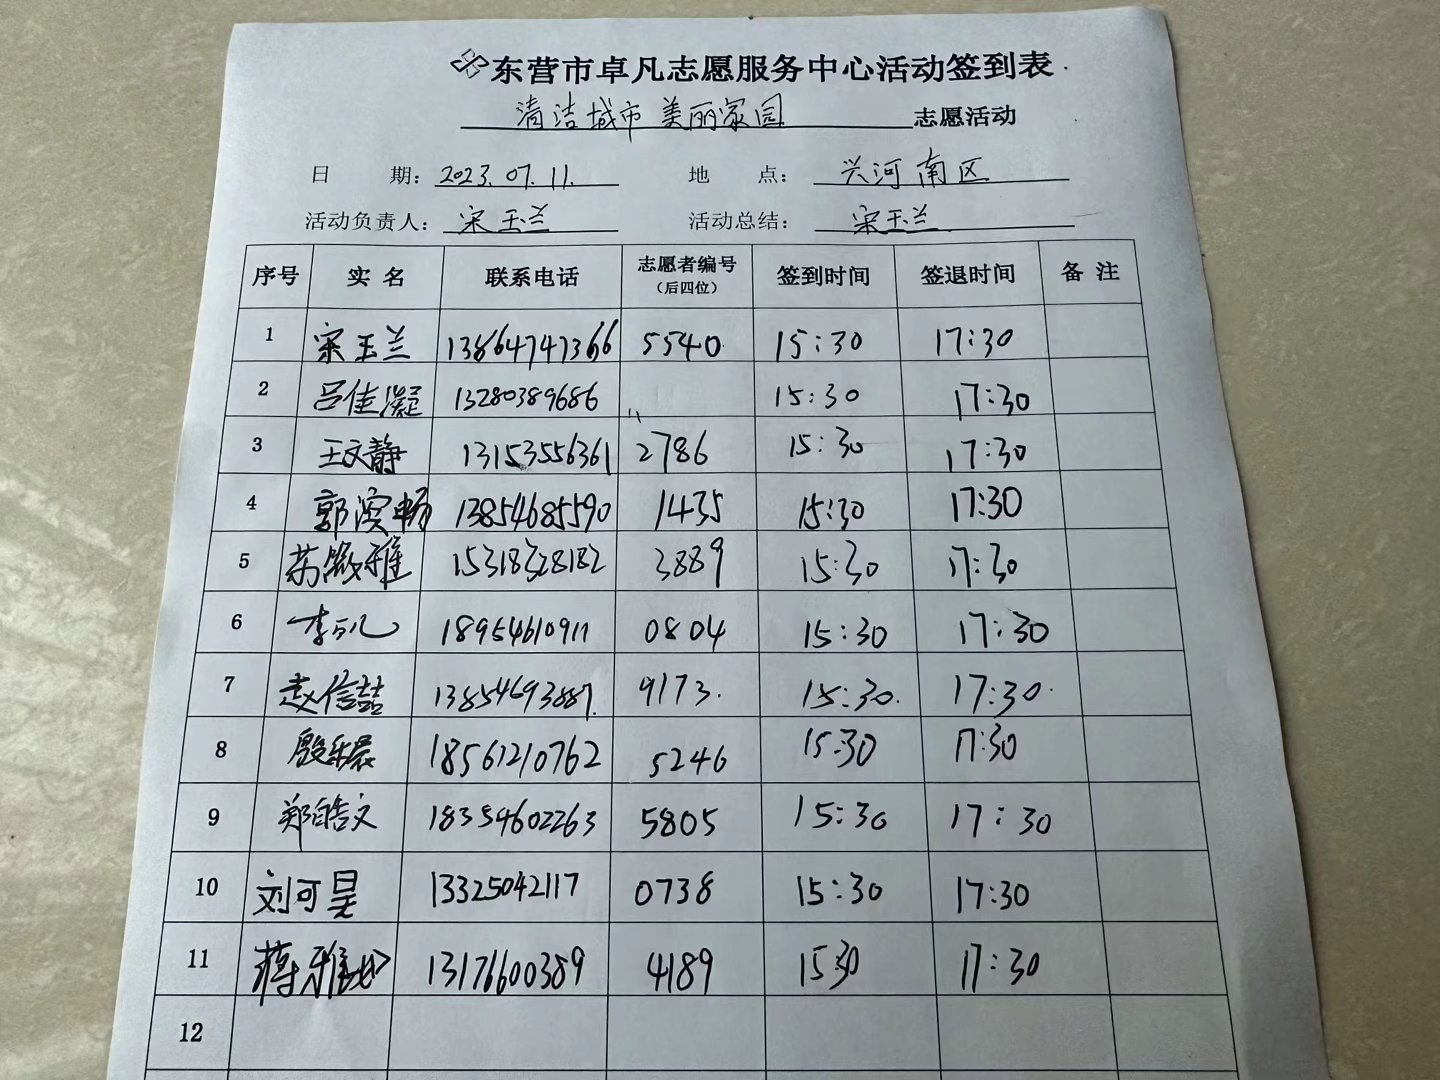 东营市卓凡志愿服务中心活动签到表
清洁城市 美丽家园 志愿活动
日 期： 2023.07.11. 地 点： 兴河南区
活动负责人： 宋玉兰 活动总结： 宋玉兰
序号 实 名 联系电话 志愿者编号（后四位） 签到时间 签退时间 备 注
1 宋玉兰 13864747366 5540 15:30 17:30
2 吕佳凝 13280389686 15:30 17:30
3 王文静 13153556361 2786 15:30 17:30
4 郭滨畅 13854685590 1435 15:30 17:30
5 15318328182 3889 15:30 17:30
6 18954610911 0804 15:30 17:30
7 赵信喆 13854693887. 9173. 15:30. 17:30.
8 殷乐晨 18561210762 5246 15:30 17:30
9 郑皓文 18359602263 5805 15:30 17:30
10 刘可昊 13325042117 0738 15:30 17:30
11 13176600389 4189 1530 17:30
12